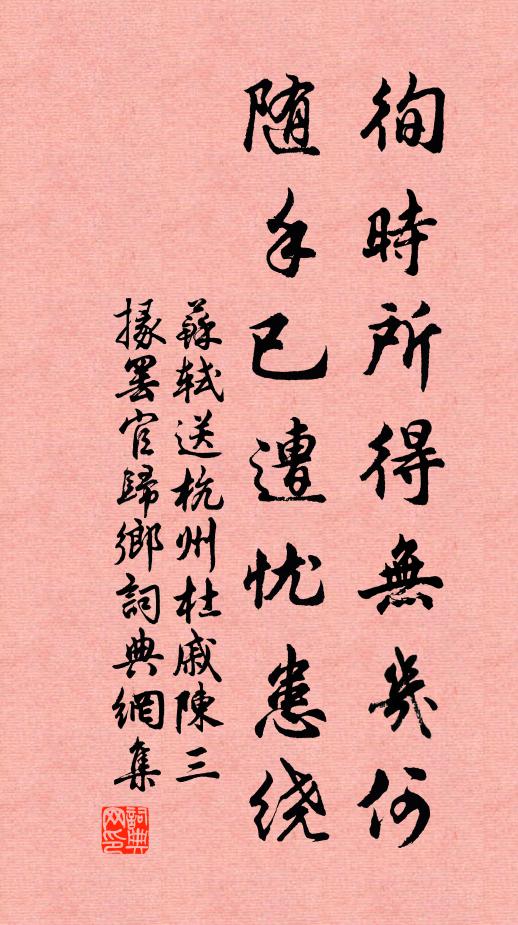 徇時所得無幾何
随手已遭忧患绕
蘇軾送杭州杜戚陳三
掾罢官歸鄉詞典網集
詞典
网印